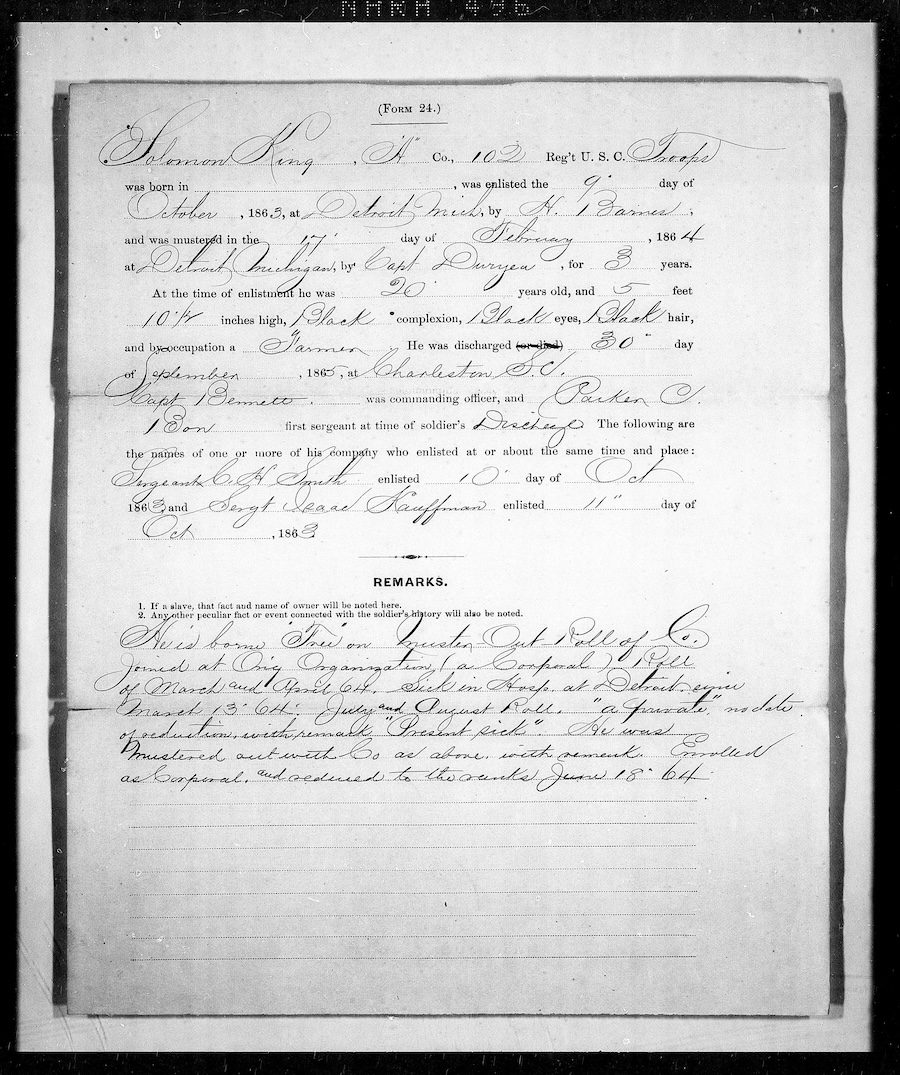 NHRH 496
(FORM 24.)
Solomon King , "A" Co., 102 Reg't U. S. C. Troops
was born in , was enlisted the 9" day of
October , 1863, at Detroit Mich, by H. Barnes ,
and was mustered in the 17" day of February , 1864
at Detroit, Michigan, by Capt Duryea , for 3 years.
At the time of enlistment he was 20 years old, and 5 feet
10 1/2 inches high, Black complexion, Black eyes, Black hair,
and by occupation a Farmer . He was discharged (or died) 30" day
of September , 1865, at Charleston S.C.
Capt Bennett. was commanding officer, and Parker C.
Bon first sergeant at time of soldier's Discharge The following are
the names of one or more of his company who enlisted at or about the same time and place:
Sergeant C. H. Smith enlisted 10" day of Oct
1863, and Sergt Isaac Kauffman enlisted 11" day of
Oct , 1863.
REMARKS.
1. If a slave, that fact and name of owner will be noted here.
2. Any other peculiar fact or event connected with the soldier's history will also be noted.
He is borne "Free" on Muster Out Roll of Co.
Joined at Orig Organization, (a Corporal) Roll
of March and April 64. Sick in Hosp. at Detroit since
March 13" 64". July and August Roll. "a private", no date
of reduction, with remark, "Present sick". He was
mustered out with Co as above. with remark. Enrolled
as Corporal, and reduced to the ranks June 18" 64